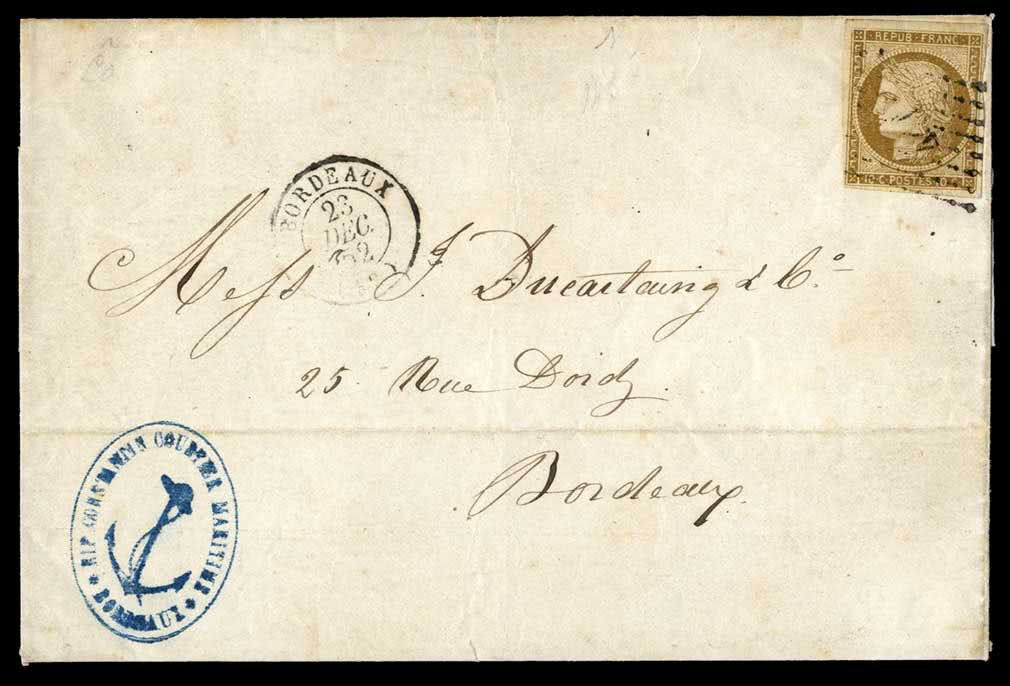 REPUB·FRANC
10·C·POSTES·10·C
BORDEAUX
23
DEC.
52
Mess J. Ducastaing & Co.
25 Rue Doidy.
Bordeaux.
COURTIER MARITIME
BORDEAUX